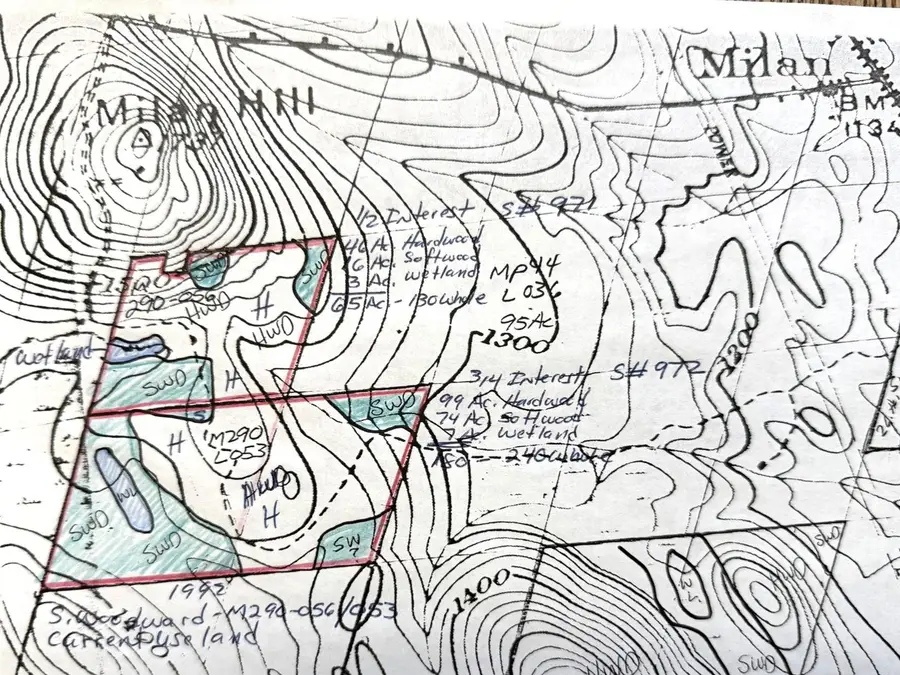 Milan
Milan Hill
BM
1134
1/2 Interest S# 971
46 Ac. Hardwood
16 Ac. Softwood
3 Ac. Wetland
65 Ac - 130 whole
MP94
L 036
95 Ac
1300
SWD
SWD
290-056
HWD
H
HWD
Wetland
SWD
H
3/4 Interest S# 972
99 Ac. Hardwood
74 Ac. Softwood
Ac. Wetland
180 - 240 whole
1200
SWD
S
H
M290
L053
HWD
H
WL
SWD
SWD
SW
1400
SWD
HWD
HWD
SWD
1992
S. Woodward - M290-056/053
Current Use land